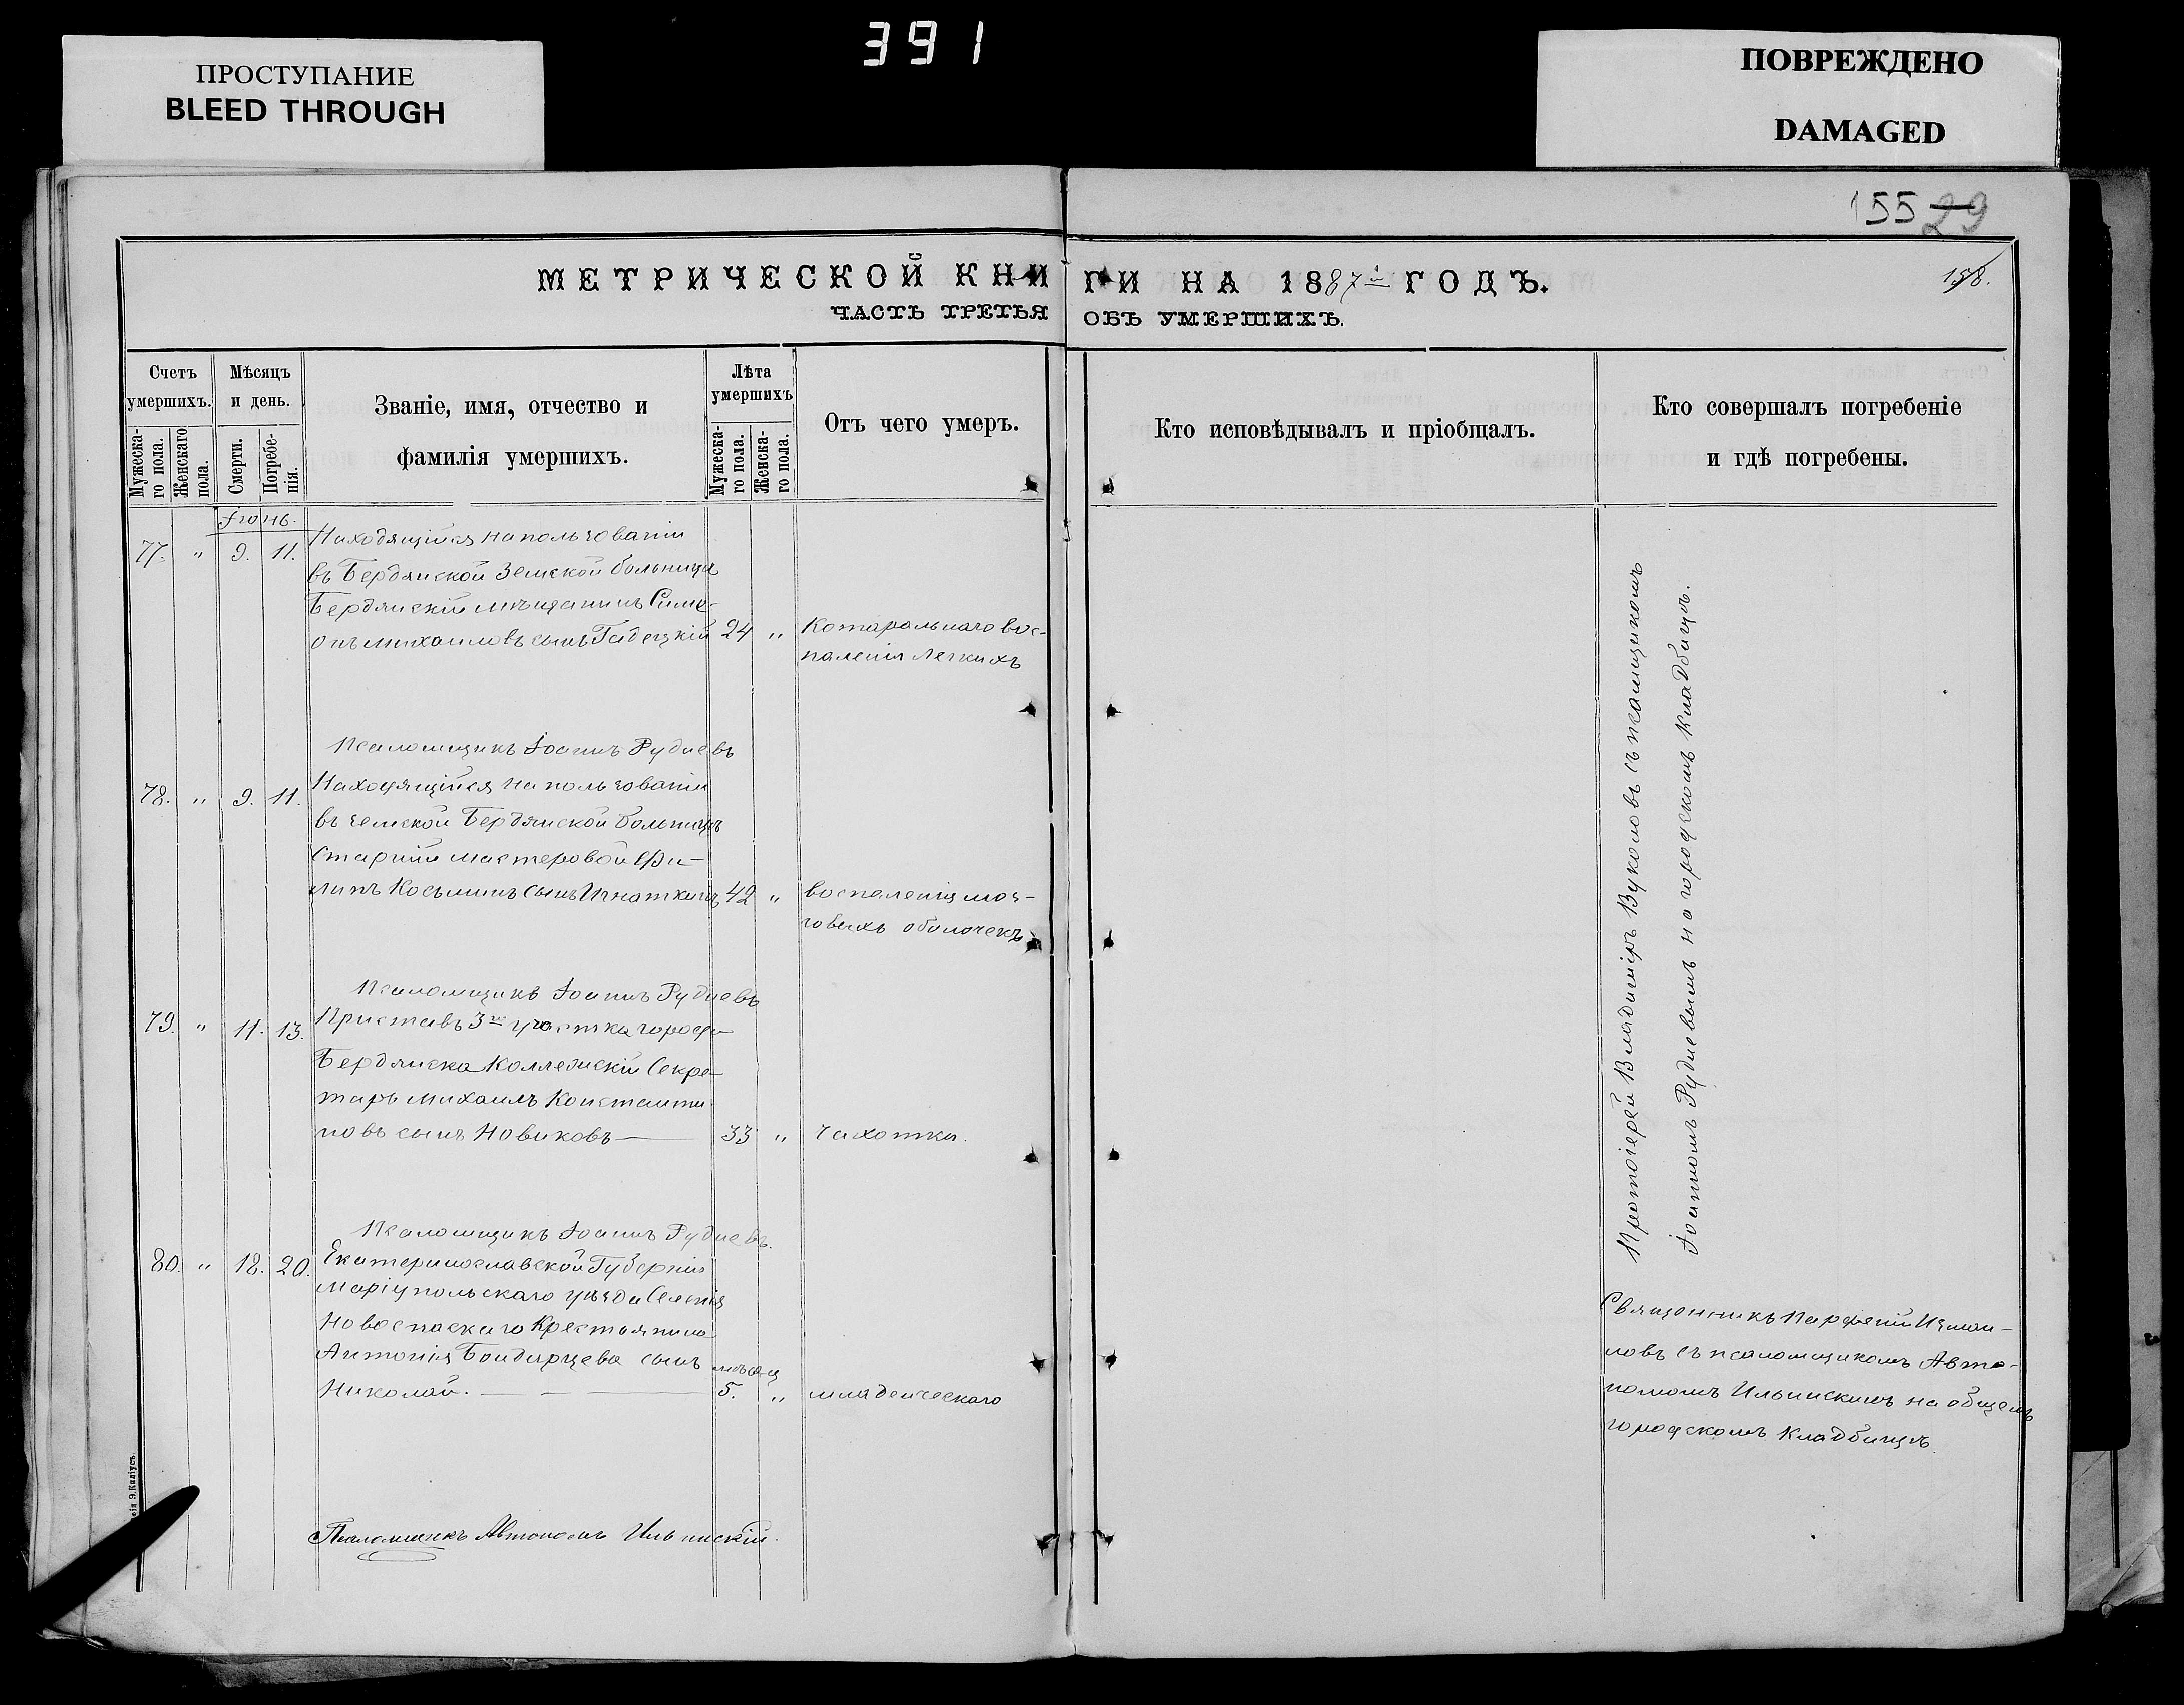 391
ПРОСТУПАНИЕ
BLEED THROUGH
ПОВРЕЖДЕНО
DAMAGED
155 29
МЕТРИЧЕСКОЙ КНИГИ НА 1887й ГОДЪ.
158.
ЧАСТЬ ТРЕТЬЯ ОБЪ УМЕРШИХЪ.
Счетъ умершихъ.
Мужеска-го пола.
Женскаго пола.
Мѣсяцъ и день.
Смерти.
Погребе-нія.
Званіе, имя, отчество и
фамилія умершихъ.
Лѣта умершихъ
Мужеска-го пола.
Женска-го пола.
Отъ чего умеръ.
Кто исповѣдывалъ и пріобщалъ.
Кто совершалъ погребеніе
и гдѣ погребены.
Іюнь.
77. " 9. 11. Находящійся на пользованіи
въ Бердянской Земской больницѣ
Бердянскій мѣщанинъ Симе-
онъ Михаиловъ сынъ 24 " Катаральнаго вос-
паленія легкихъ
Псаломщикъ Іоаннъ Рудневъ
78. " 9. 11. Находящійся на пользованіи
въ земской Бердянской больницѣ
Старшій мастеровой Фи-
липъ Косьминъ сынъ 42 " воспаленія моз-
говыхъ оболочекъ
Псаломщикъ Іоаннъ Рудневъ
79. " 11. 13. Приставъ 3го участка города
Бердянска Коллежскій Секре-
тарь Михаилъ Константи
новъ сынъ Новиковъ — 33 " чахотка.
Псаломщикъ Іоаннъ Рудневъ.
80. " 18. 20. Екатеринославской Губерніи
Маріупольскаго уѣзда Селенія
Новоспаскаго Крестьянина
Антонія Бондарцева сынъ мѣсяц
Николай. — — — 5. " младенческаго
Псаломщикъ Автономъ Ильинскій.
Протоіерей Владиміръ Вуколовъ съ псаломщикомъ
Іоанномъ Рудневымъ на городскомъ кладбищѣ.
Священникъ Парфеній Измаи-
ловъ съ псаломщикомъ Авто-
номомъ Ильинскимъ на общемъ
городскомъ кладбищѣ.